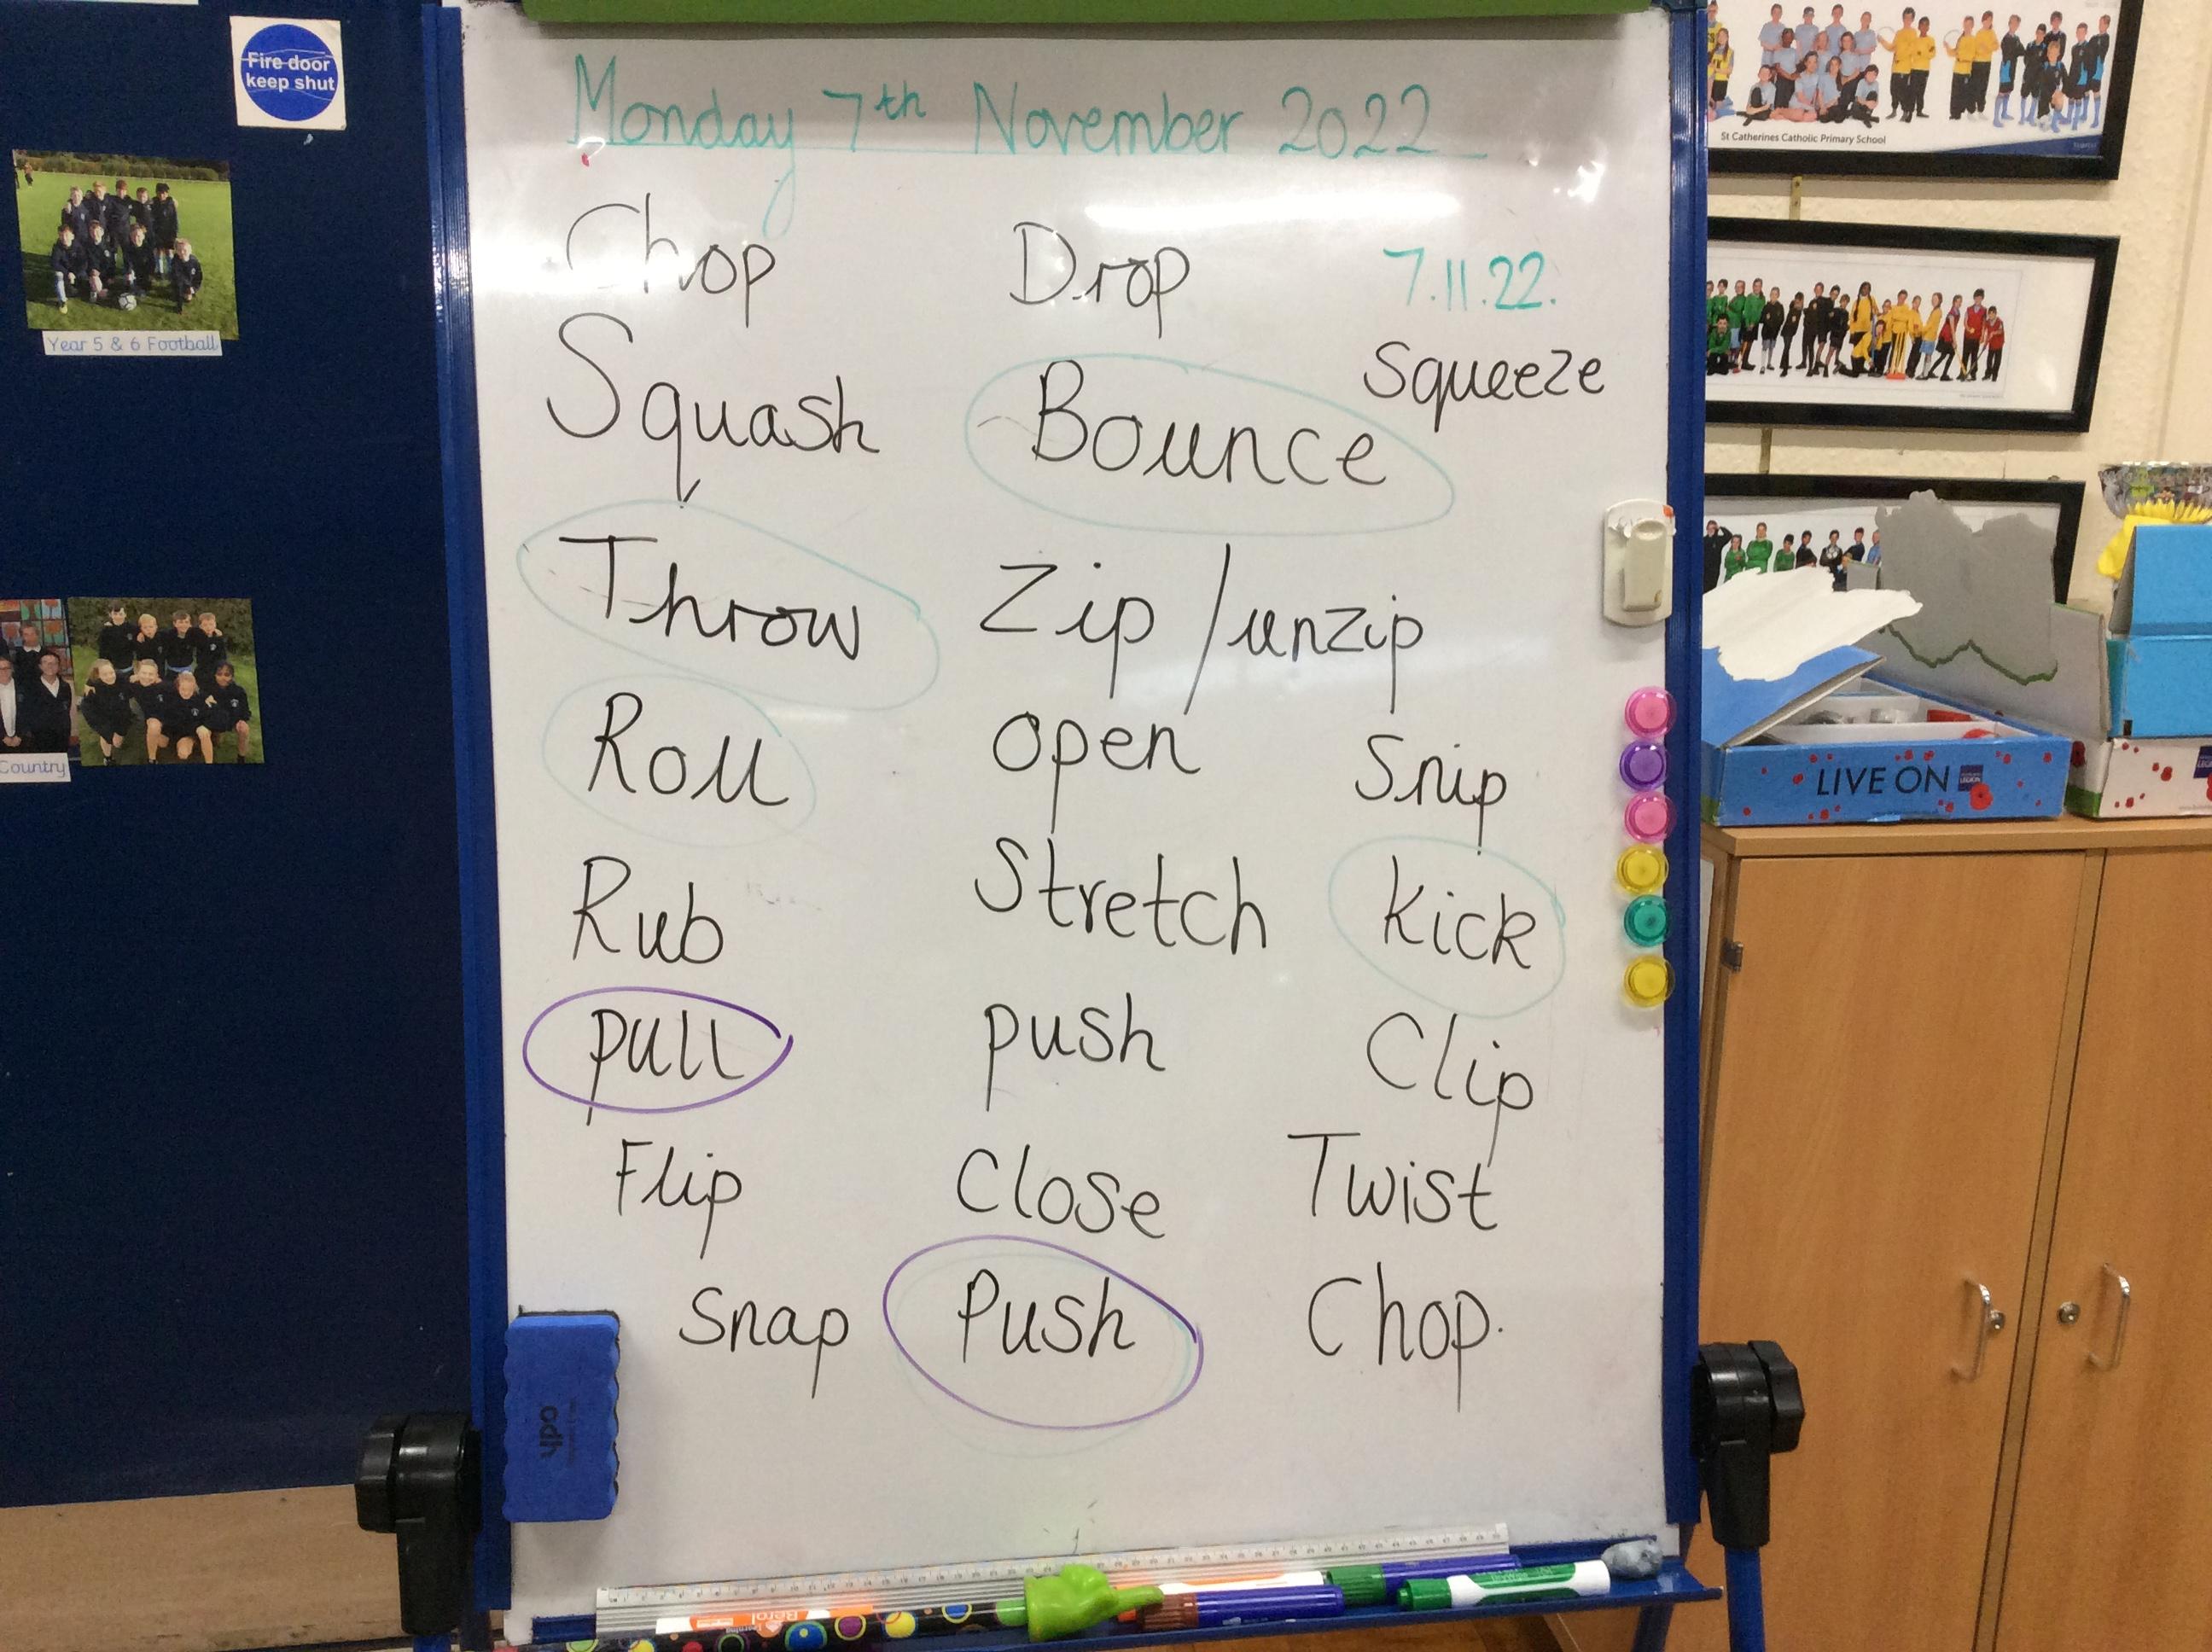 Fire door
keep shut
Monday 7th November 2022
St Catherines Catholic Primary School
Chop Drop 7.11.22.
Squeeze
Squash Bounce
Year 5 & 6 Football
Throw Zip / unzip
Roll open Snip
Country
LIVE ON
Rub Stretch kick
pull push Clip
Flip Close Twist
Snap Push Chop.
ypo
Berol